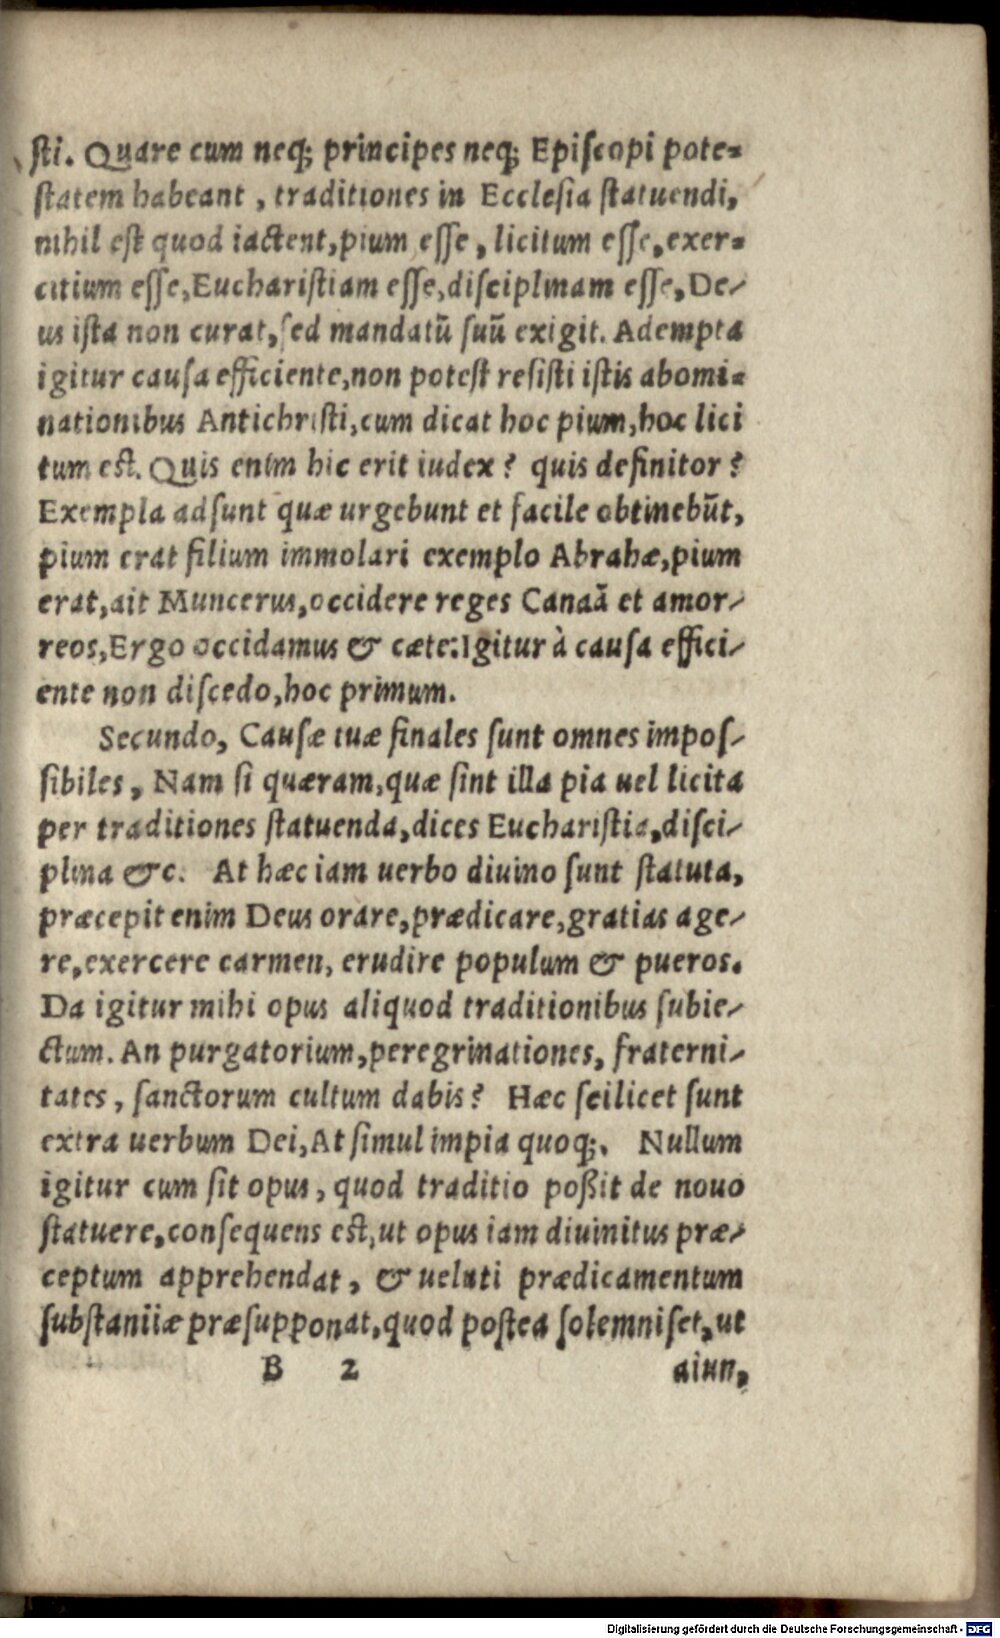 sti. Quare cum neq; principes neq; Episcopi pote=
statem habeant, traditiones in Ecclesia statuendi,
nihil est quod iactent, pium esse, licitum esse, exer=
citium esse, Eucharistiam esse, disciplinam esse, De-
us ista non curat, sed mandatū suū exigit. Adempta
igitur causa efficiente, non potest resisti istis abomi=
nationibus Antichristi, cum dicat hoc pium, hoc lici
tum est. Quis enim hic erit iudex? quis definitor?
Exempla adsunt quæ urgebunt et facile obtinebūt,
pium erat filium immolari exemplo Abrahæ, pium
erat, ait Muncerus, occidere reges Canaā et amor-
reos, Ergo occidamus & cæte: Igitur à causa effici-
ente non discedo, hoc primum.
Secundo, Causæ tuæ finales sunt omnes impos-
sibiles, Nam si quæram, quæ sint illa pia uel licita
per traditiones statuenda, dices Eucharistia, disci-
plina &c. At hæc iam uerbo diuino sunt statuta,
præcepit enim Deus orare, prædicare, gratias age-
re, exercere carmen, erudire populum & pueros.
Da igitur mihi opus aliquod traditionibus subie-
ctum. An purgatorium, peregrinationes, fraterni-
tates, sanctorum cultum dabis? Hæc scilicet sunt
extra uerbum Dei, At simul impia quoq;. Nullum
igitur cum sit opus, quod traditio poßit de nouo
statuere, consequens est, ut opus iam diuinitus præ-
ceptum apprehendat, & ueluti prædicamentum
substantiæ præsupponat, quod postea solemniset, ut
B 2 aiun,
Digitalisierung gefördert durch die Deutsche Forschungsgemeinschaft - DFG